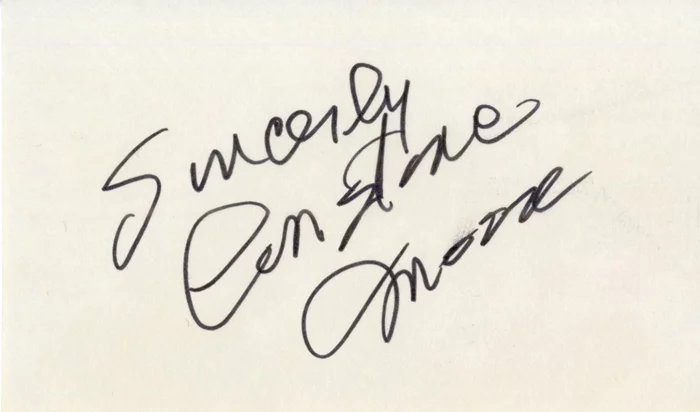 Sincerly
Constance
Moore